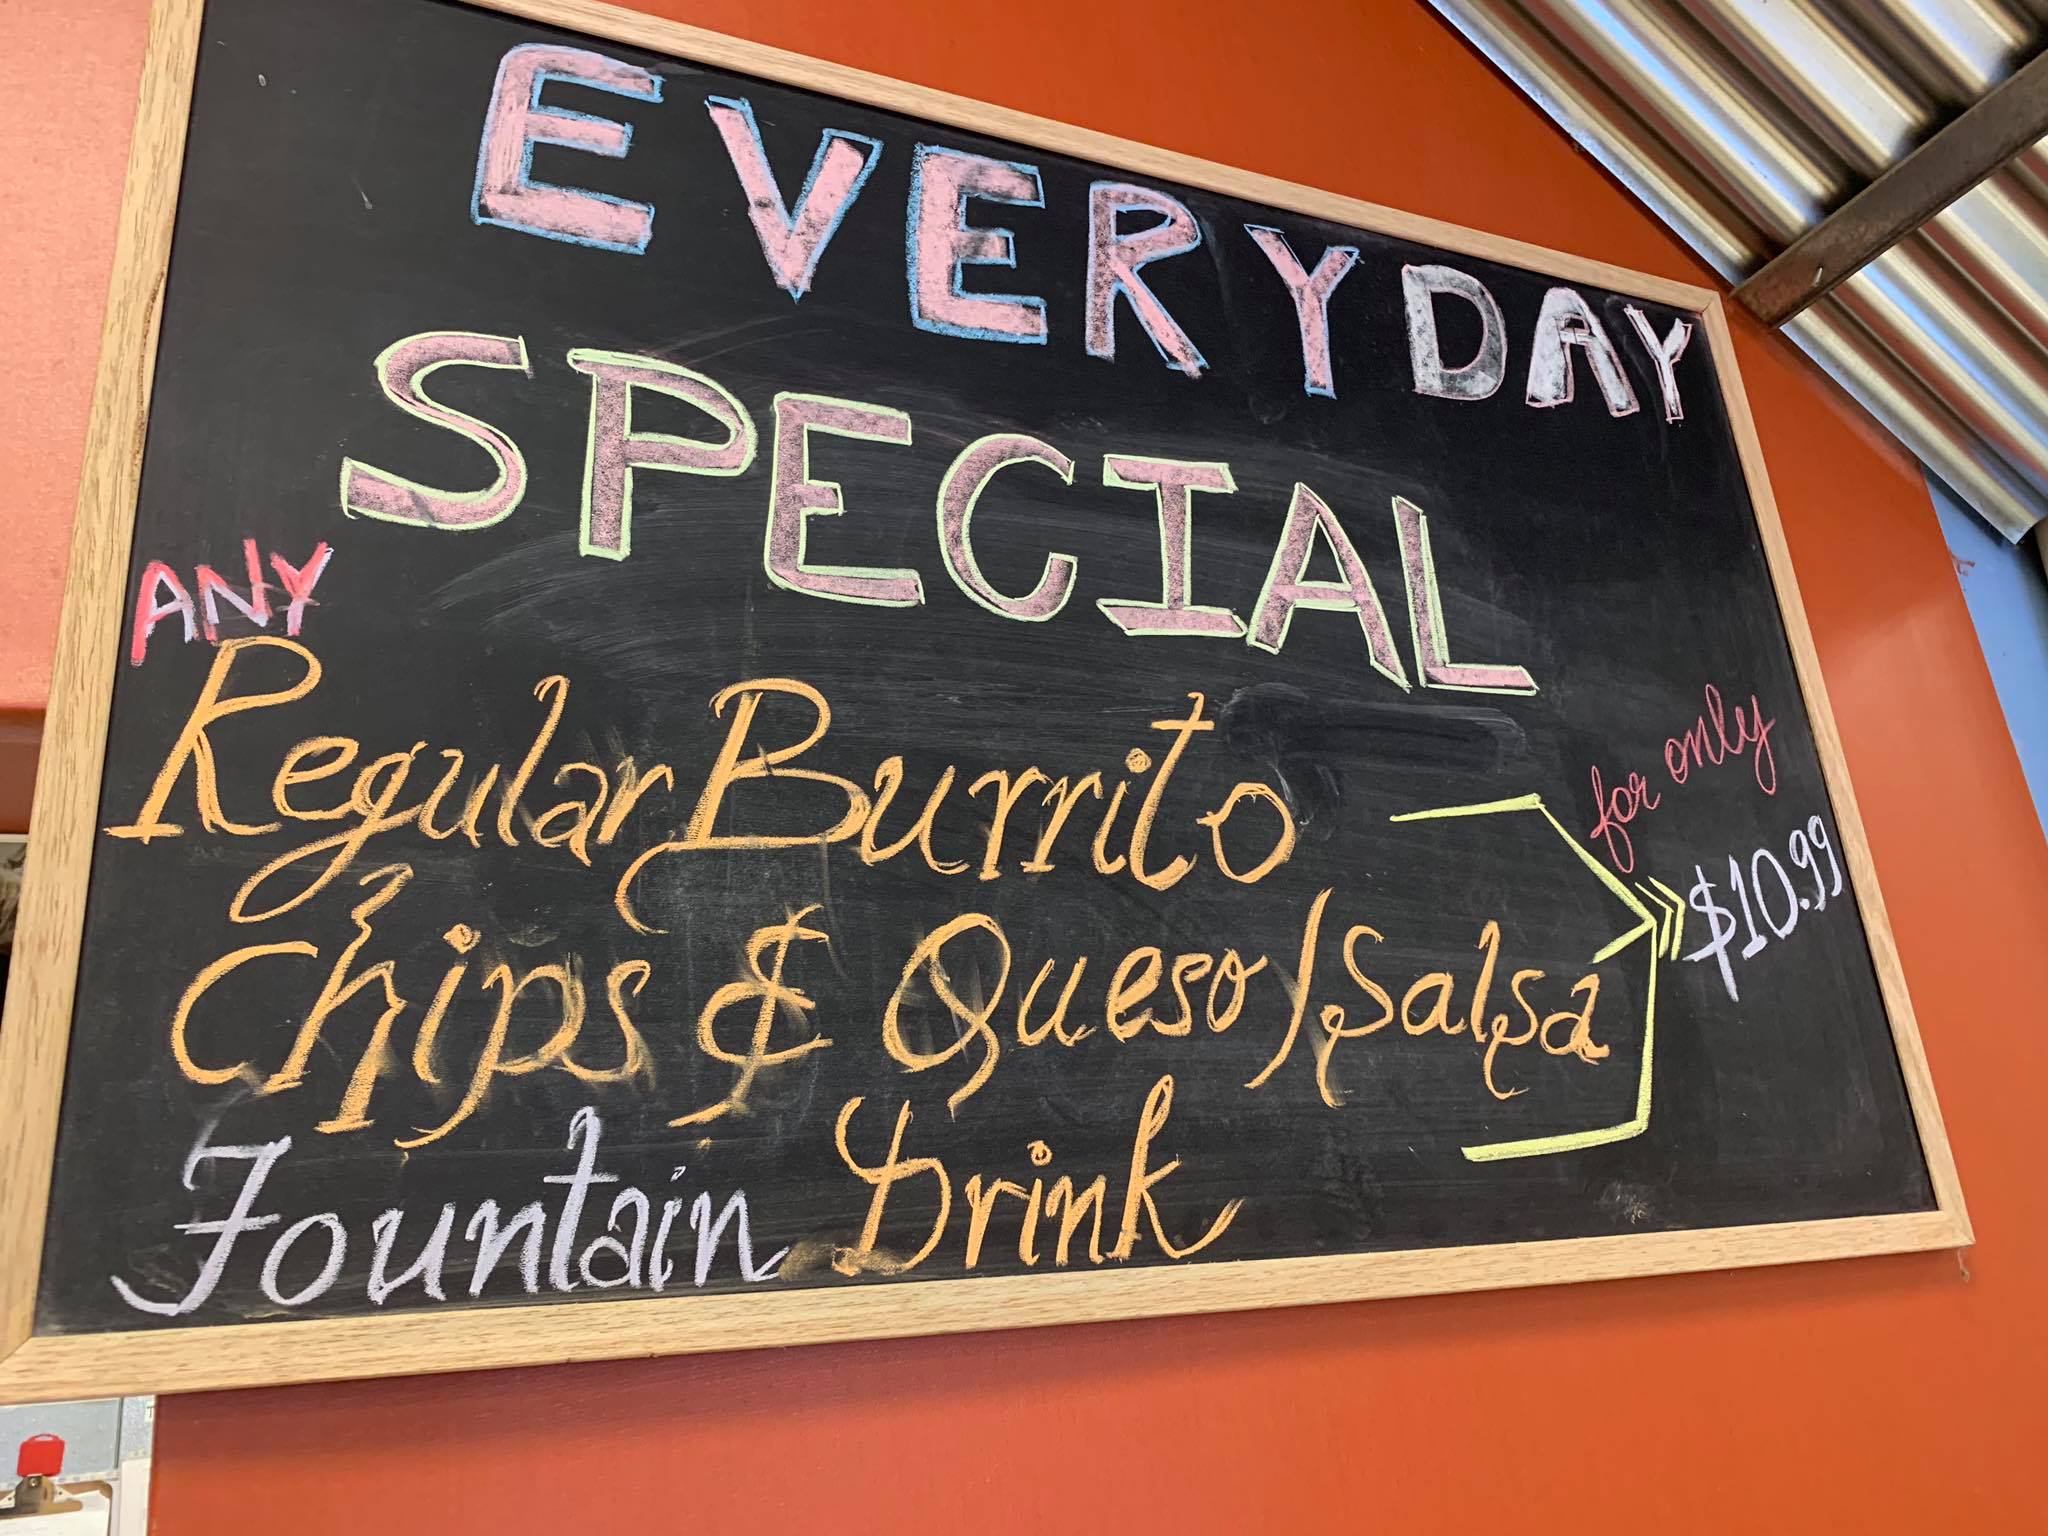 EVERYDAY
SPECIAL
ANY
Regular Burrito
Chips & Queso/Salsa
Fountain Drink
for only
$10.99